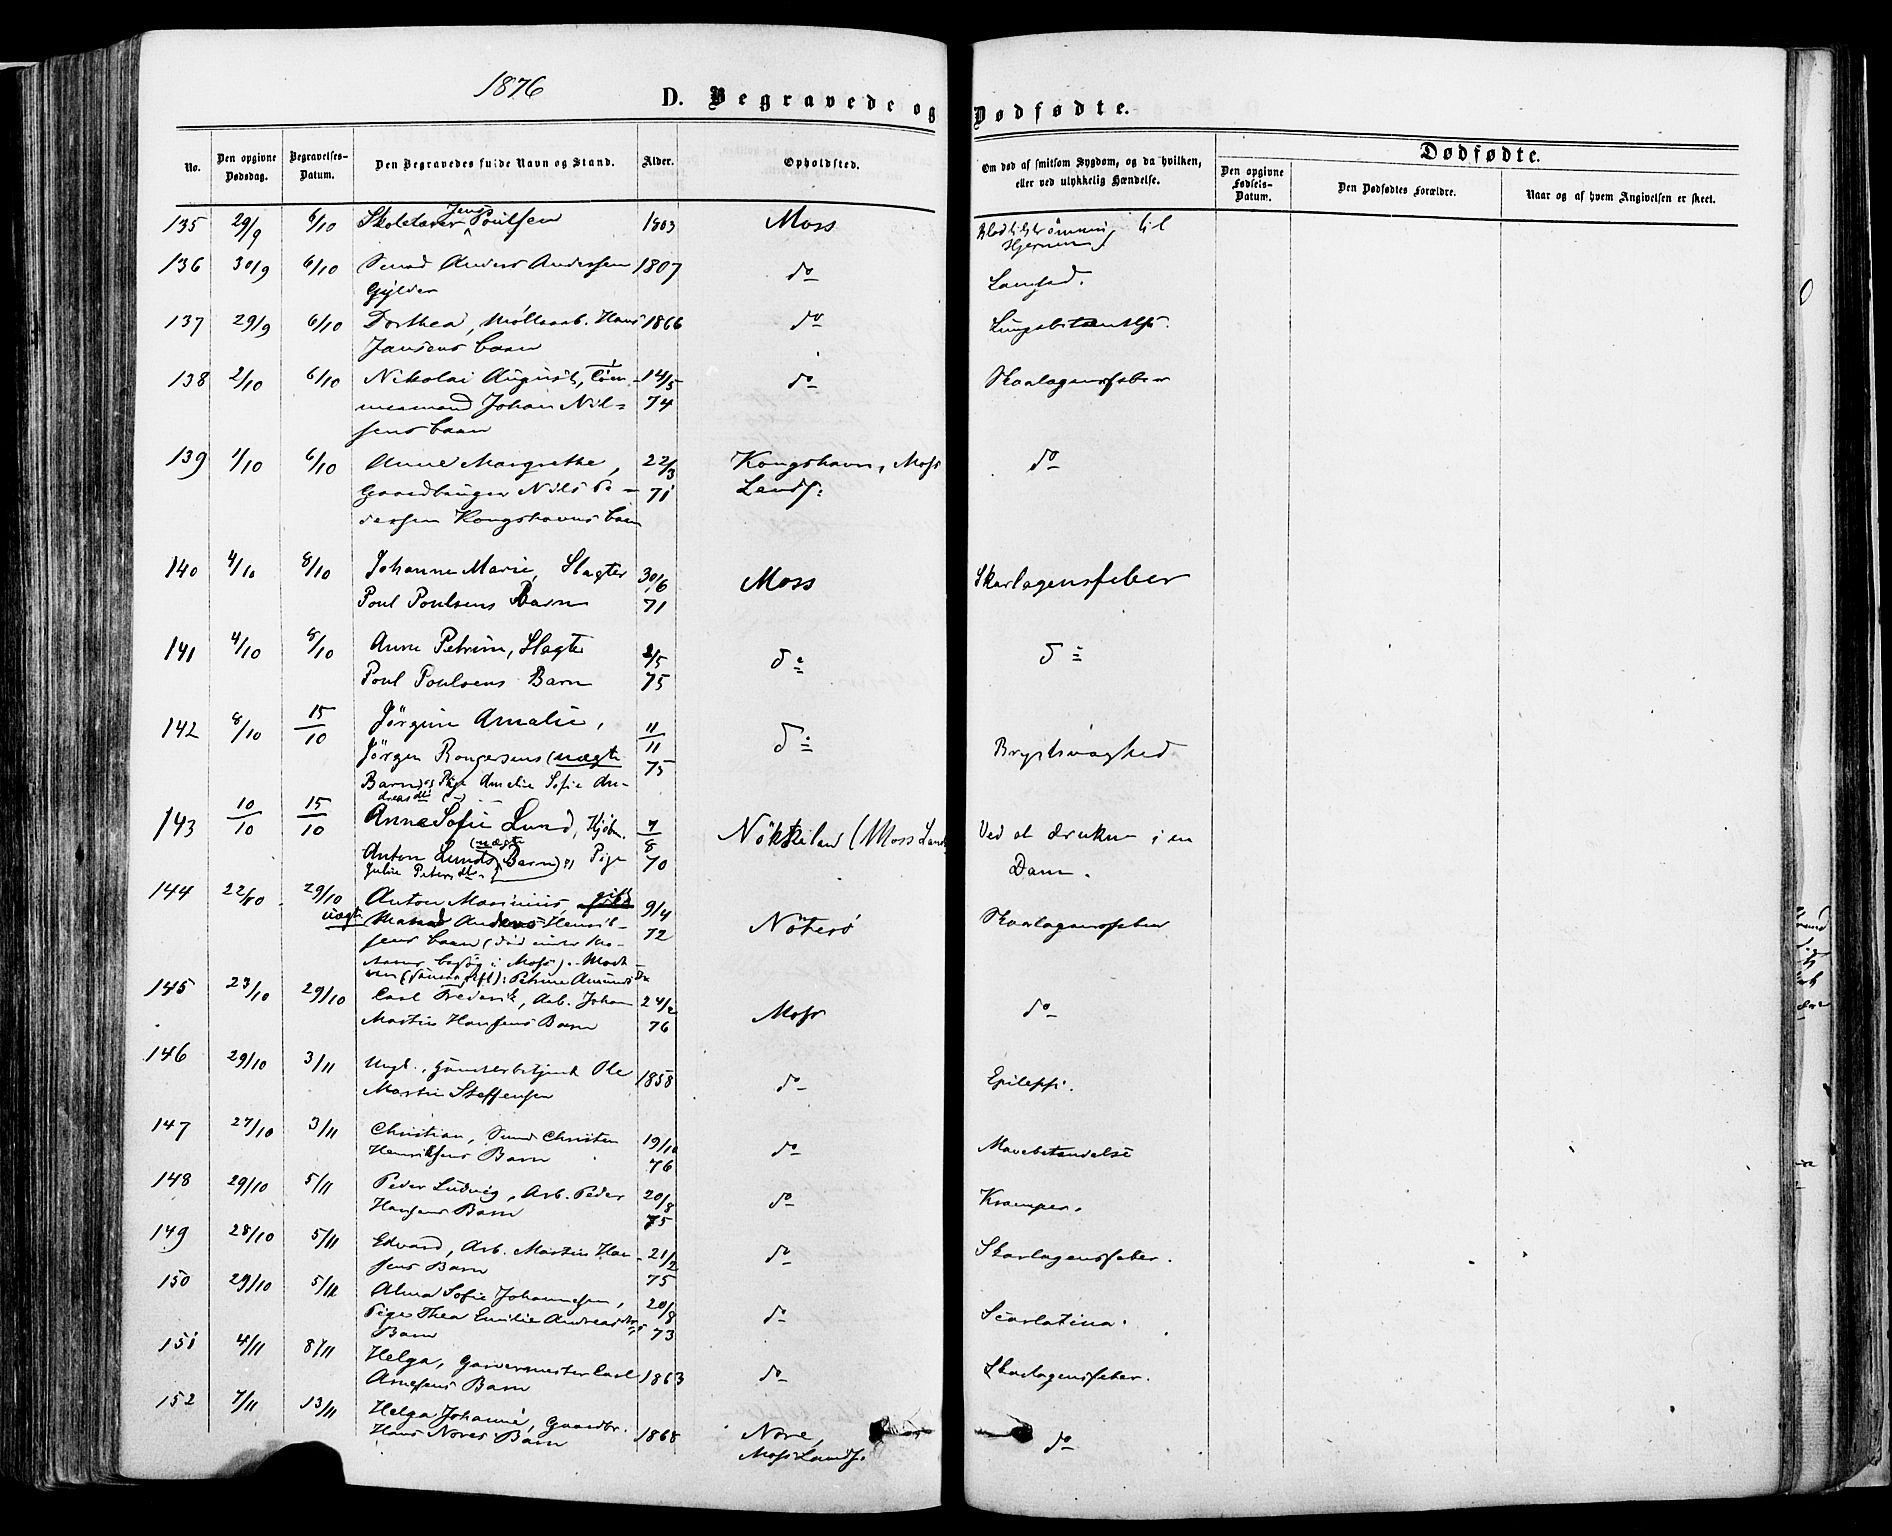 1876
D. Begravede og Dødfødte.
No.
Den opgivne Dødsdag.
Begravelses-Datum.
Den Begravedes fulde Navn og Stand.
Alder.
Opholdsted.
Om død af smitsom Sygdom, og da hvilken, eller ved ulykkelig Hændelse.
Dødfødte.
Den opgivne Fødsels-Datum.
Den Dødfødtes Forældre.
Naar og af hvem Angivelsen er skeet.
135 29/9 6/10 Skolelærer Jens Poulsen 1803 Moss Blodtilstrømning til
Hjernen
136 30/9 6/10 Anders Andersen 1807 do
Gylder
137 29/9 6/10 Dorthea, Møllearb. Hans 1866 do Lungebetændelse.
Jansens barn
138 2/10 6/10 Nikolai August, Töm- 14/5 do Skarlagensfeber
mermand Johan Nil- 74
sens barn
139 1/10 6/10 Anne Margrethe, 22/3 Kongshavn, Moss do
Gaardbruger Nils Pe- 71 Lands:
dersen Kongshavns barn
140 4/10 8/10 Johanne Marie, Slagter 30/6 Moss Skarlagensfeber
Poul Poulsens Barn 71
141 4/10 8/10 Anne Petrine, Slagter 2/5 do do
Poul Poulsens Barn 75
142 8/10 15/10 Jørgine Amalie, 11/11 do Brystsvaghed
Jörgen Rongesens (uægte 75
Barn) og Pige Amelie Sofie An-
dreasdtr
143 10/10 15/10 Anne Sofie Lund, 7/8 (Moss Land Ved at drukne i en
Anton Lunds (uægte Barn) og Pige 70 Dam.
Julie Petersdtr.
144 22/10 29/10 Anton Marinius, gift 9/4 Nøterö Skarlagensfeber
uægte Matros Anders Henrik- 72
sens barn (död under
besøg i Moss). Mod-
ren : Petrine Amundsdtr
145 23/10 29/10 Carl Frederik, Arb. Johan 24/2 Moss do
Martin Hansens Barn 76
146 29/10 3/11 Ungk., Ole 1858 do Epilepsi.
Martin Steffensen
147 27/10 3/11 Christian, Christen 19/10 do Mavebetændelse
Henriksens Barn 76
148 29/10 5/11 Peder Ludvig, Arb. Peder 20/8 do Kramper.
Hansens Barn 75
149 28/10 5/11 Edvard, Arb. Martin Han- 21/2 do Skarlagensfeber.
sens Barn 75
150 29/10 5/11 Alma Sofie Johannesen, 20/8 do Scarlatina.
Pige Thea Emilie Andreasdtrs 73
Barn
151 4/11 8/11 Helga, Garvermester Carl 1863 do Skarlagensfeber.
Arnesens Barn
152 7/11 13/11 Helga Johanne, Gaardbr. 1868 Nore, do
Hans Nores Barn Moss Lands.